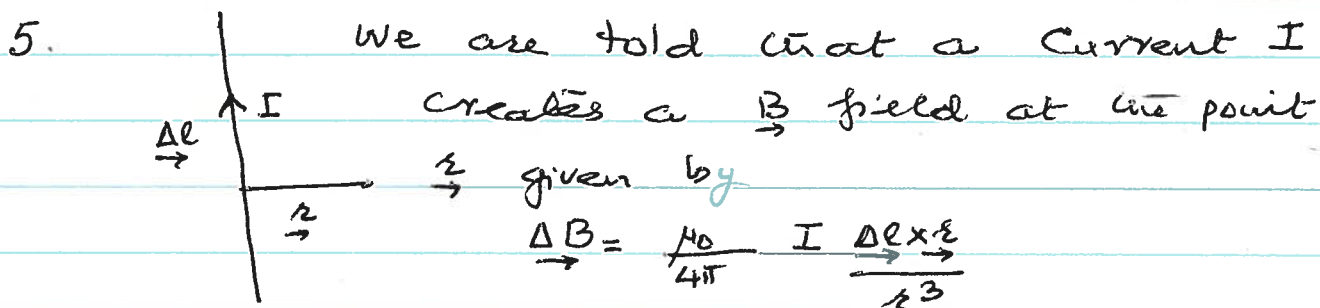 5. We are told that a Current I
I creates a B⃗ field at the point
Δl⃗ r⃗ given by
r⃗ ΔB⃗ = μ₀/4π I Δl⃗ × r⃗ / r³